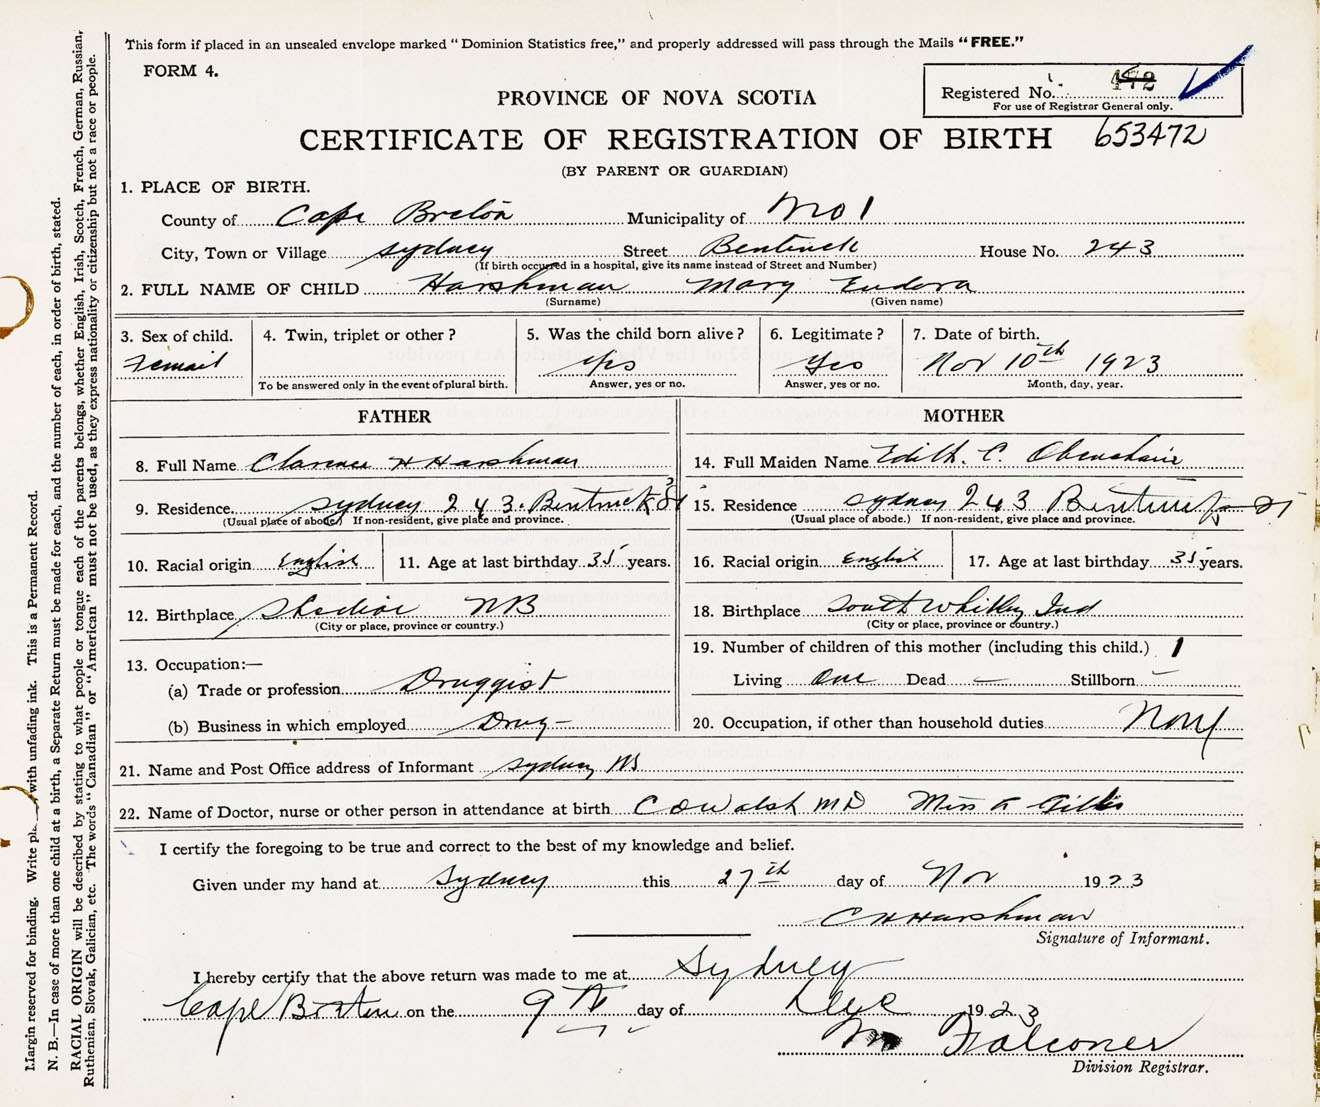 This form if placed in an unsealed envelope marked "Dominion Statistics free," and properly addressed will pass through the Mails "FREE."
FORM 4.
Registered No. 472
For use of Registrar General only.
PROVINCE OF NOVA SCOTIA
CERTIFICATE OF REGISTRATION OF BIRTH 653472
(BY PARENT OR GUARDIAN)
1. PLACE OF BIRTH.
County of Cape Breton Municipality of No 1
City, Town or Village Sydney Street Bentinck House No. 243
(If birth occured in a hospital, give its name instead of Street and Number)
2. FULL NAME OF CHILD Harshman Mary Eudora
(Surname) (Given name)
3. Sex of child. 4. Twin, triplet or other? 5. Was the child born alive? 6. Legitimate? 7. Date of birth.
Femail Yes Yes Nov 10th 1923
To be answered only in the event of plural birth. Answer, yes or no. Answer, yes or no. Month, day, year.
FATHER
8. Full Name Clarence H Harshman
9. Residence. Sydney 243. Bentinck St
(Usual place of abode.) If non-resident, give place and province.
10. Racial origin English 11. Age at last birthday 35 years.
12. Birthplace Shediac NB
(City or place, province or country.)
13. Occupation:—
(a) Trade or profession Druggist
(b) Business in which employed Drug-
MOTHER
14. Full Maiden Name Edith. C. Obenchain
15. Residence Sydney 243 Bentinck St
(Usual place of abode.) If non-resident, give place and province.
16. Racial origin English 17. Age at last birthday 35 years.
18. Birthplace South Whitley Ind
(City or place, province or country.)
19. Number of children of this mother (including this child.) 1
Living One Dead — Stillborn —
20. Occupation, if other than household duties None
21. Name and Post Office address of Informant Sydney NS
22. Name of Doctor, nurse or other person in attendance at birth C O Walsh MD Miss Gillis
I certify the foregoing to be true and correct to the best of my knowledge and belief.
Given under my hand at Sydney this 27th day of Nov 1923
C H Harshman
Signature of Informant.
I hereby certify that the above return was made to me at Sydney
Cape Breton on the 9th day of Dec 1923
M Falconer
Division Registrar.
Margin reserved for binding. Write with unfading ink. This is a Permanent Record.
N. B.—In case of more than one child at a birth, a Separate Return must be made for each, and the number of each, in order of birth, stated.
RACIAL ORIGIN will be described by stating to what people or tongue each of the parents belongs, whether English, Irish, Scotch, French, German, Russian,
Ruthenian, Slovak, Galician, etc. The words "Canadian" or "American" must not be used, as they express nationality or citizenship but not a race or people.